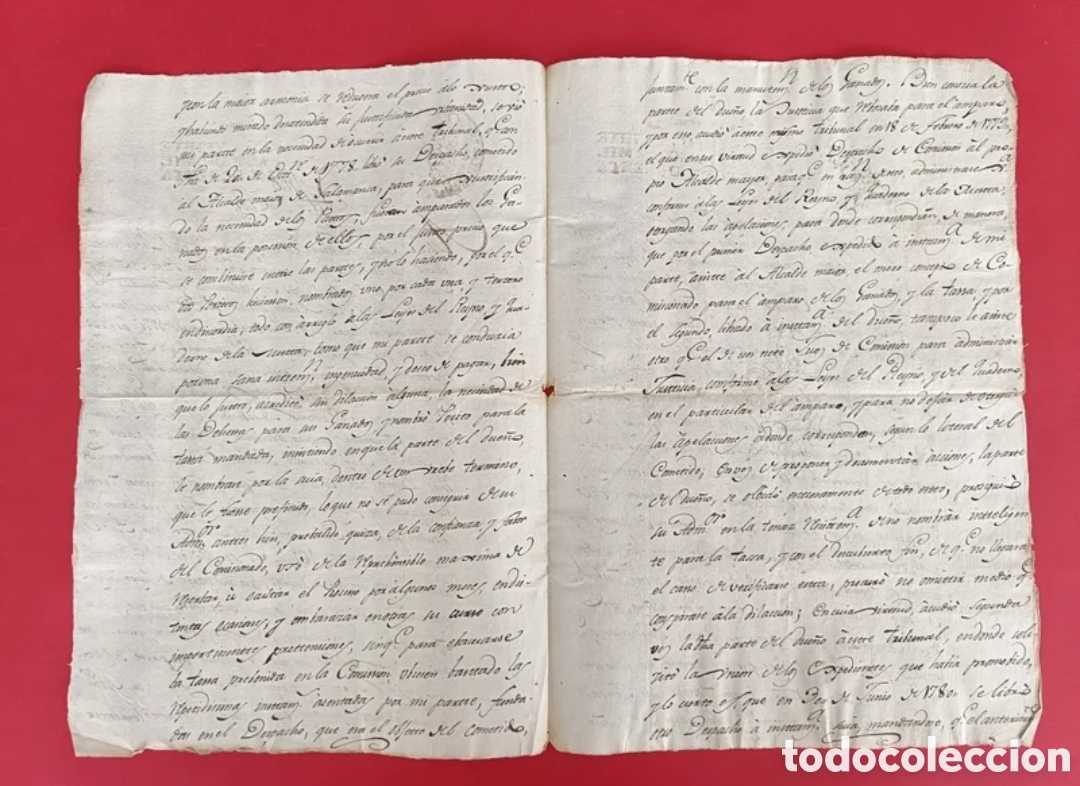 con la maior armonia se reduxera el precio a lo justo;
mi parte en la necesidad de acudir à este Tribunal, q.e con
fha de de de 1778 libró su Despacho, cometido
al Alcalde maior de Salamanca, para que justifican-
do la necesidad de los Pastos, fuesen amparados los Ga-
nados en la posesion de ellos, por el justo precio que
se combiniese entre las partes, y no lo haciendo, por el q.e
dos Peritos hiciesen, nombrados uno, por cada una y tercero
en discordia; todo con arreglo à las Leyes del Reyno, y Qua-
derno de la Mesta; como que mi parte se conducia
por una sana intenz.n, ingenuidad, y deseo de pagar, bien
que lo justo, acreditò sin dilacion alguna, la necesidad de
las Dehesas para sus Ganados y nombrò Perito para la
tasa mandada, insistiendo en que la parte del dueño,
le nombrase por la suia, dentro de un breve termino,
que le fuese prefinido, lo que no se pudo conseguir de su
Adm.or antes bien, prebalido quiza, de la confianza, y fabor
del Comisionado, usò de la reprehensible maxima de
ausentar, ù ocultar el Perito por algunos meses, en dis-
tintas ocasiones, y embarazar en otras su curso con
impertinentes pretensiones, sin q.e para efectuarse
la tasa prebenida en la Comision, hubiesen bastado las
repetidisimas instanz.s asentadas por mi parte, funda-
das en el Despacho, que era el objeto del cometido,
juntam.te con la manutenz.n de los Ganados. Bien conocia la
parte del dueño la Justicia que resistia para el amparo,
y por eso, acudiò à este mismo Tribunal en 18 de Febrero de 1779,
el que en su virtud expidiò Despacho de Comision al pro-
pio Alcalde maior, para q.e en administrase
conforme à las Leyes del Reyno, y Quaderno de la Mesta,
otorgando las apelaciones, para donde correspondian, de manera,
que por el primer Despacho expedido à instanz.a de mi
parte, asiste al Alcalde maior, el mero concepto de Co-
misionado para el amparo de los Ganados, y la tasa, y por
el segundo, librado à instanz.a del dueño, tampoco le asiste
otro q.e el de un neto Juez de Comision para administrar
Justicia, conforme à las Leyes del Reyno, y del Quaderno,
en el particular del amparo, y para no dejar de otorgar
las apelaciones à donde correspondan, segun lo literal del
Cometido; En vez de proponer, y documentar acciones, la parte
del dueño, se olbidò enteramente de todo esto; prosiguiò
su Adm.or en la tenaz resistenz.a de no nombrar inteligen-
te para la tasa, y con el descubierto fin, de q.e no llegara
el caso de verificarse esta, procurò no omitir medio q.e
conspirase à la dilacion; En cuia virtud, acudiò segunda
vez la dha parte del dueño à este Tribunal, en donde soli-
citò la union de los expedientes que habia promobido,
y lo cierto es, que en dos de Junio de 1780 se librò
otro Despacho à instanz.a suia, mandandose, q.e el anterior
todocoleccion